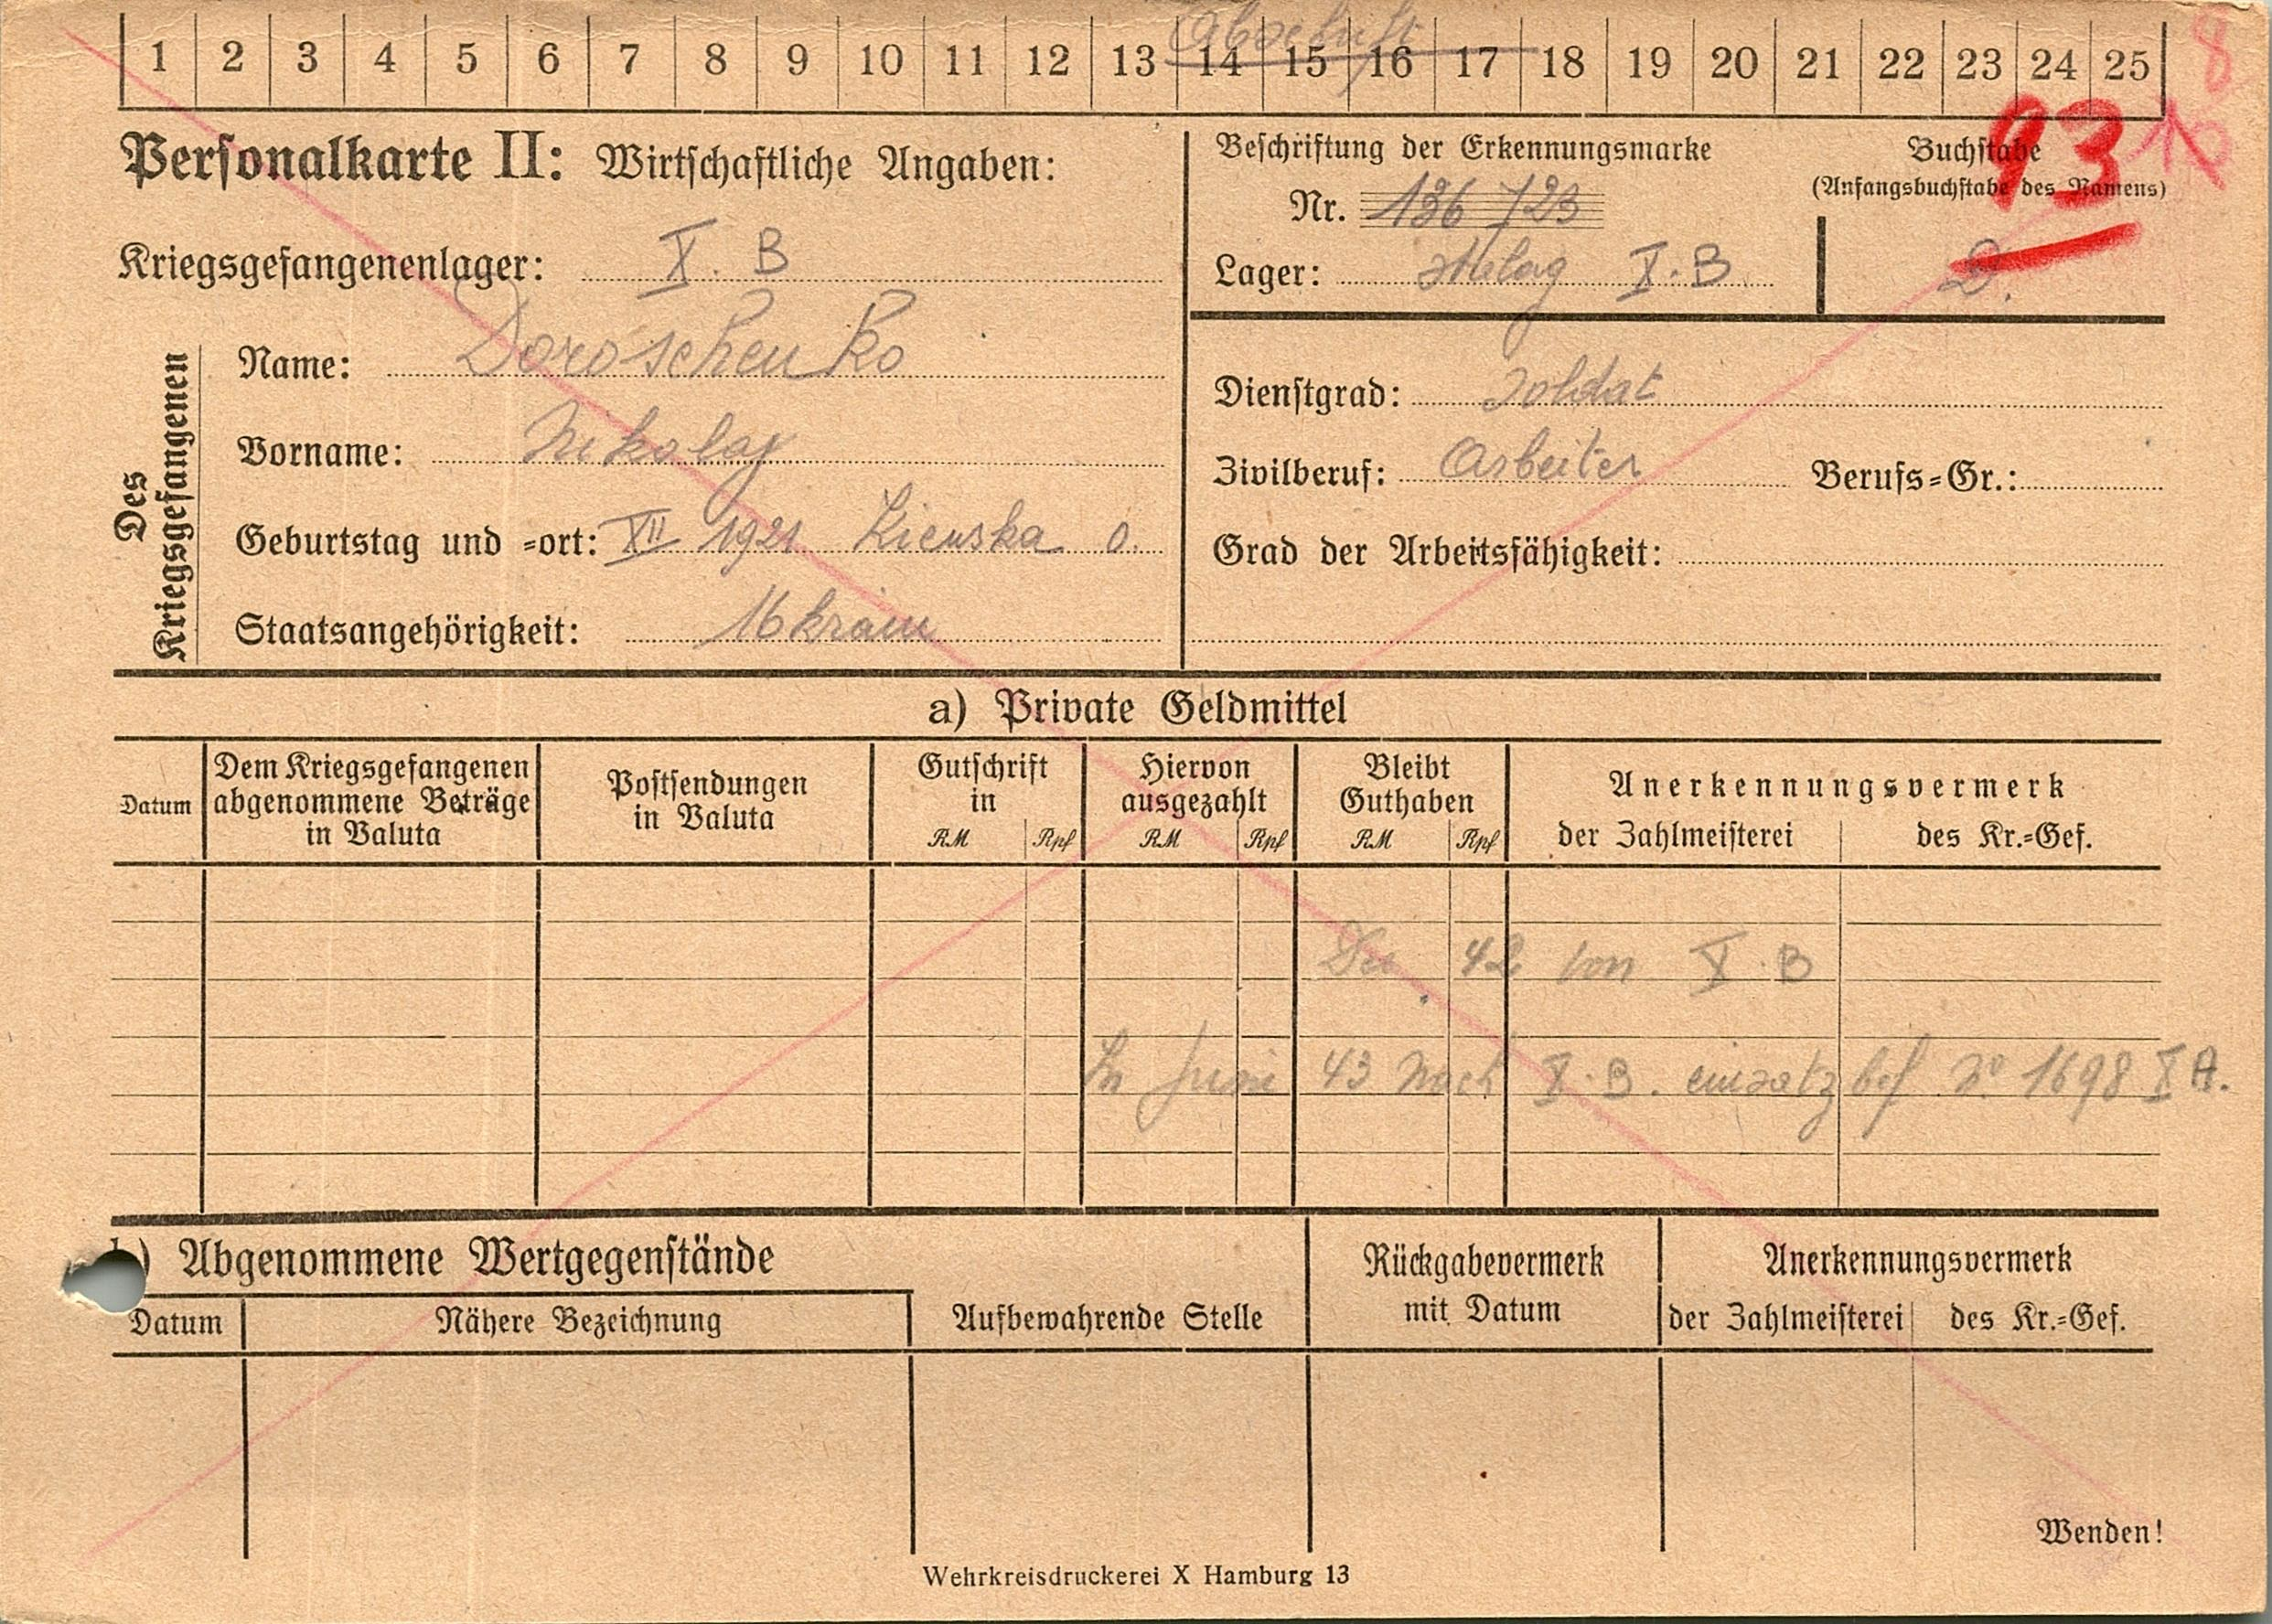 Abschrift
1 2 3 4 5 6 7 8 9 10 11 12 13 14 15 16 17 18 19 20 21 22 23 24 25
8
93
10
Personalkarte II: Wirtschaftliche Angaben:
Kriegsgefangenenlager: X. B
Beschriftung der Erkennungsmarke
Nr. 136723
Lager: Stalag X.B
Buchstabe
(Anfangsbuchstabe des Namens)
D.
Des
Kriegsgefangenen
Name: Doroschenko
Vorname: Nikolay
Geburtstag und =ort: XII 1921 Kiewska o.
Staatsangehörigkeit: Ukrain
Dienstgrad: Soldat
Zivilberuf: Arbeiter Berufs=Gr.:
Grad der Arbeitsfähigkeit:
a) Private Geldmittel
Datum
Dem Kriegsgefangenen
abgenommene Beträge
in Valuta
Postsendungen
in Valuta
Gutschrift
in
RM Rpf
Hiervon
ausgezahlt
RM Rpf
Bleibt
Guthaben
RM Rpf
Anerkennungsvermerk
der Zahlmeisterei des Kr.=Gef.
42 von X.B
In Juni 43 nach X.B. einsatz bef No 1698 X A.
b) Abgenommene Wertgegenstände
Datum Nähere Bezeichnung
Aufbewahrende Stelle
Rückgabevermerk
mit Datum
Anerkennungsvermerk
der Zahlmeisterei des Kr.=Gef.
Wenden!
Wehrkreisdruckerei X Hamburg 13